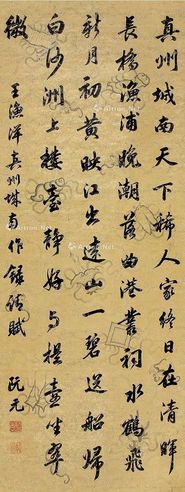 真州城南天下稀人家終日在清暉
長橋漁浦晚潮落曲港叢祠水鶴飛
新月初黃映江出遠山一碧送船歸
白沙洲上樓臺靜好與提壺坐翠
微
王漁洋真州城南作錄 阮元